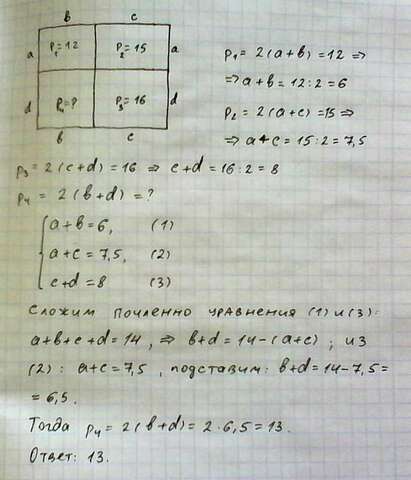 b c
a P₁=12 P₂=15 a
d P₄=? P₃=16 d
b c
P₁ = 2(a+b) = 12 ⇒
⇒ a+b = 12:2 = 6
P₂ = 2(a+c) = 15 ⇒
⇒ a+c = 15:2 = 7,5
P₃ = 2(c+d) = 16 ⇒ c+d = 16:2 = 8
P₄ = 2(b+d) = ?
a+b = 6, (1)
a+c = 7,5, (2)
c+d = 8 (3)
Сложим почленно уравнения (1) и (3):
a+b+c+d = 14, ⇒ b+d = 14-(a+c); из
(2): a+c = 7,5, подставим: b+d = 14-7,5 =
= 6,5.
Тогда P₄ = 2(b+d) = 2·6,5 = 13.
Ответ: 13.